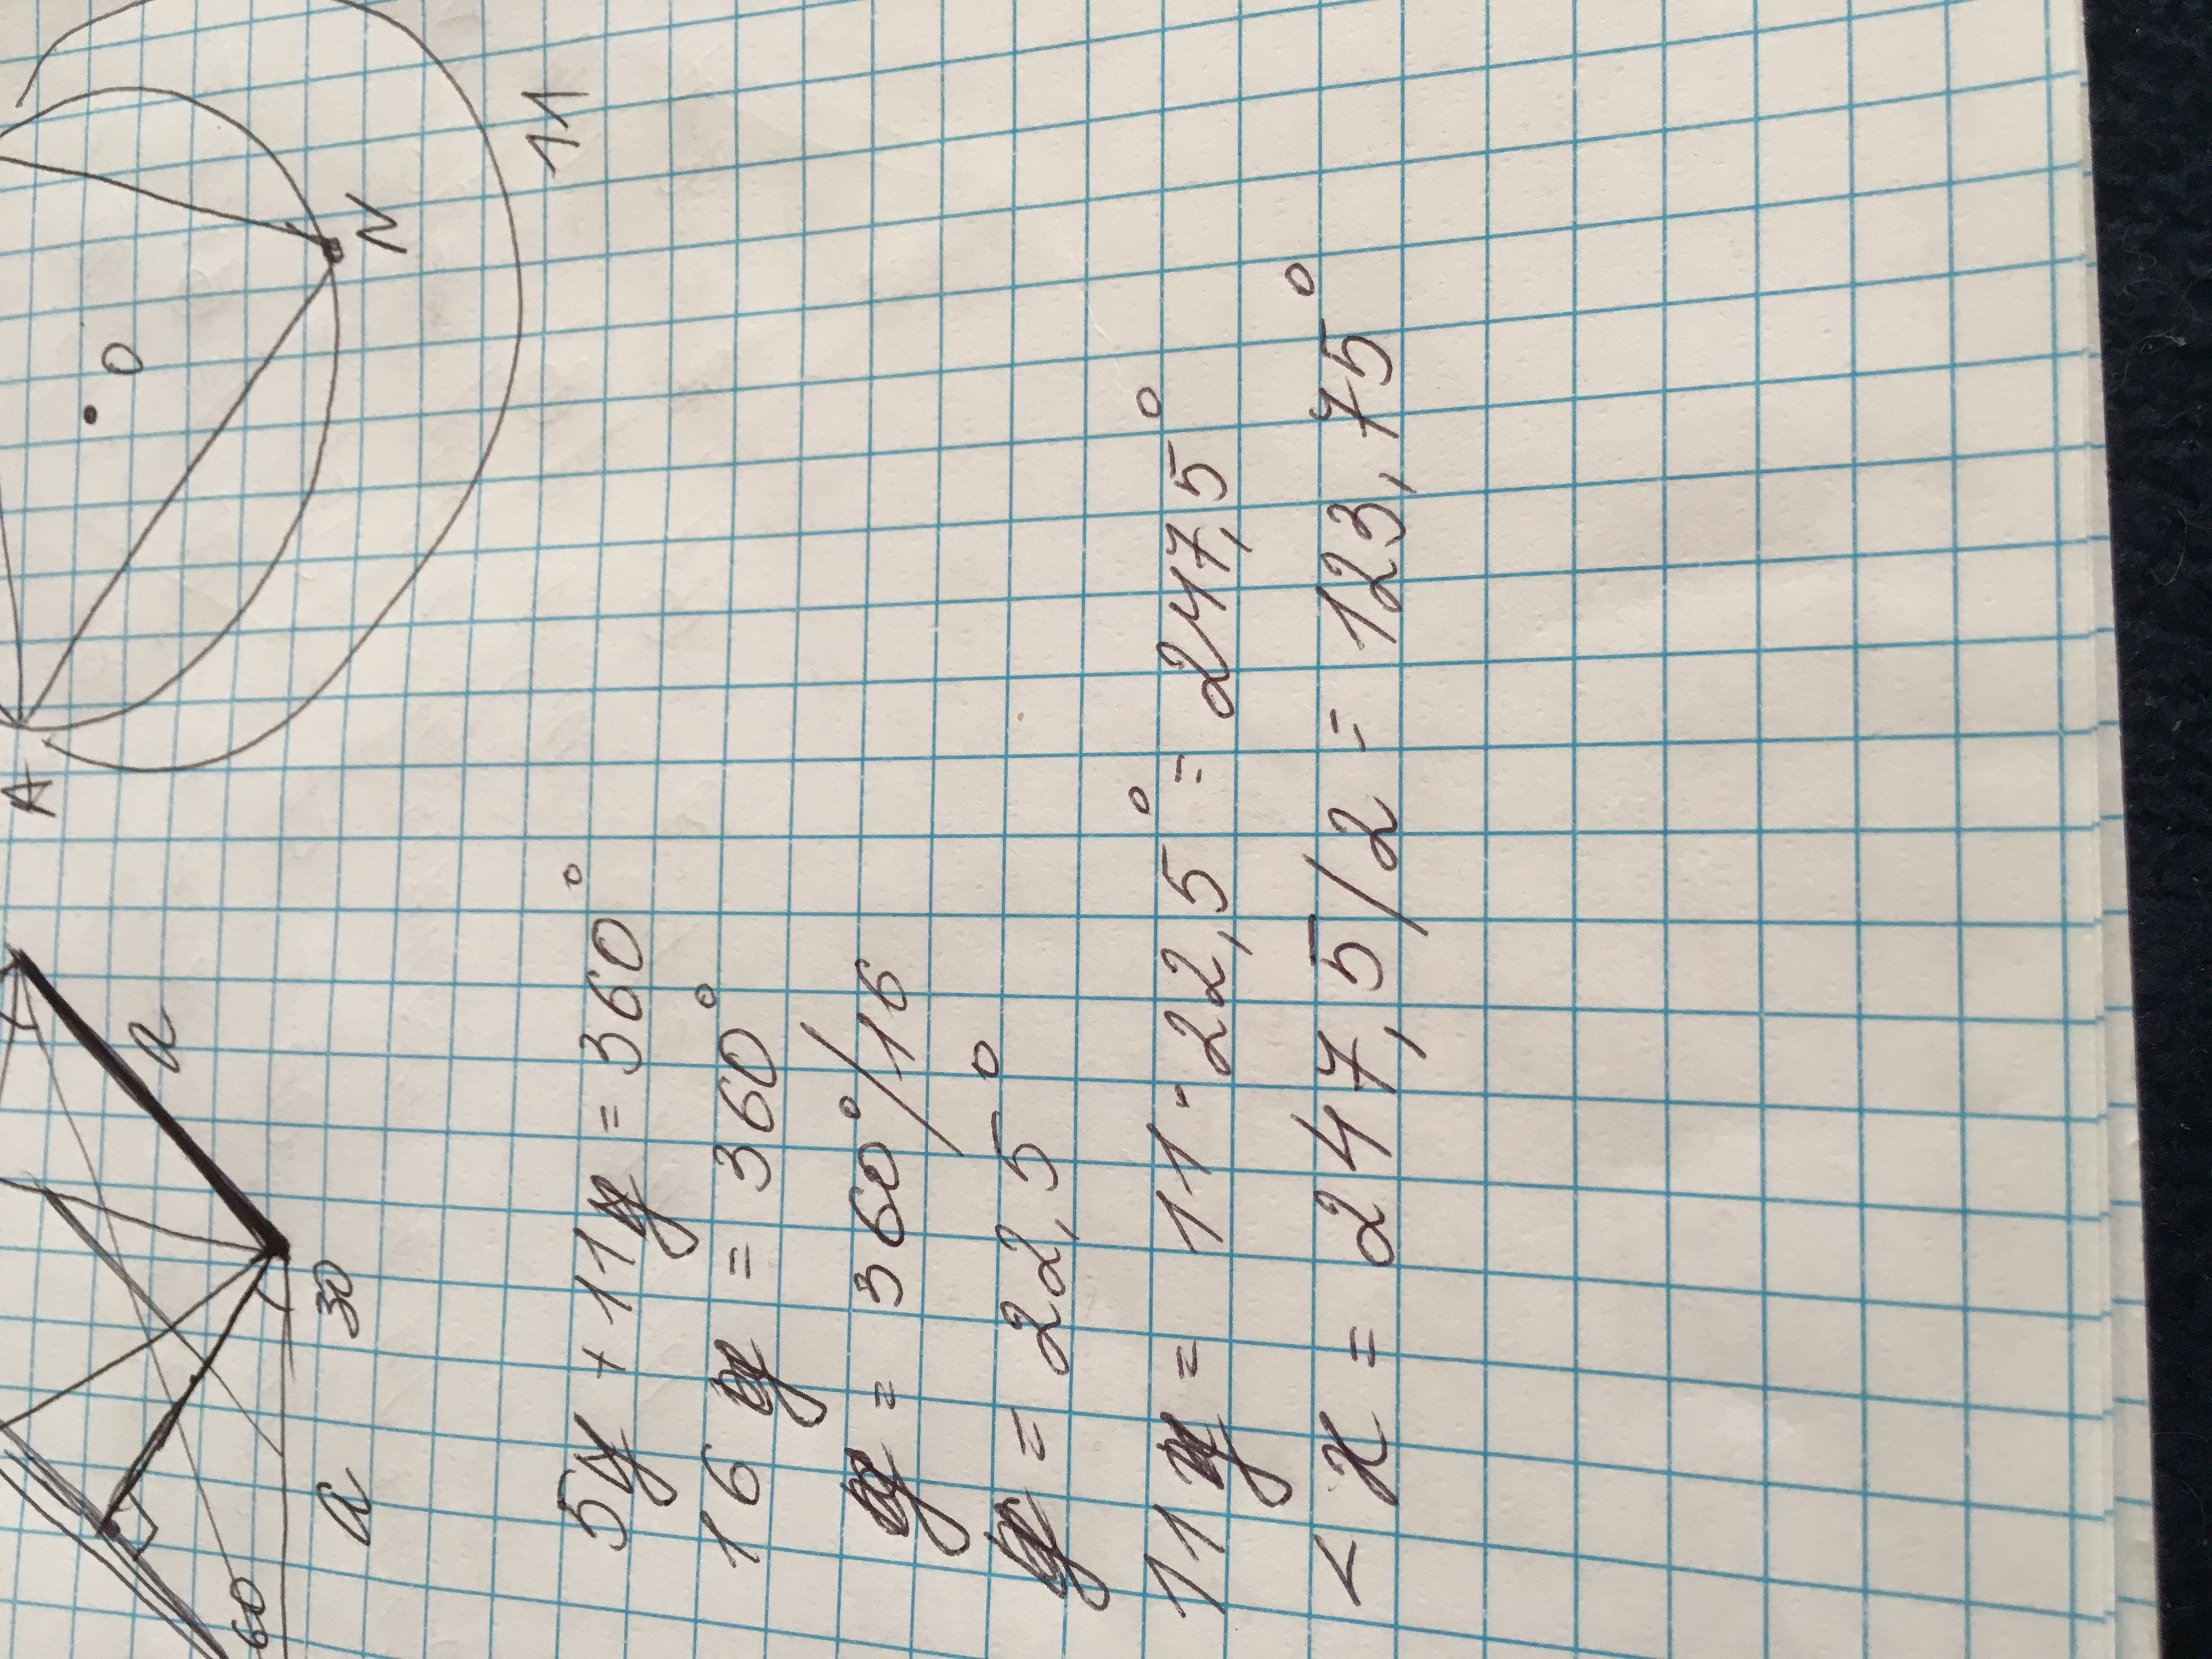 A
O
N
11
a
30
a
60
5y + 11y = 360°
16y = 360°
y = 360°/16
y = 22,5°
11y = 11 · 22,5° = 247,5°
< x = 247,5/2 = 123,75°